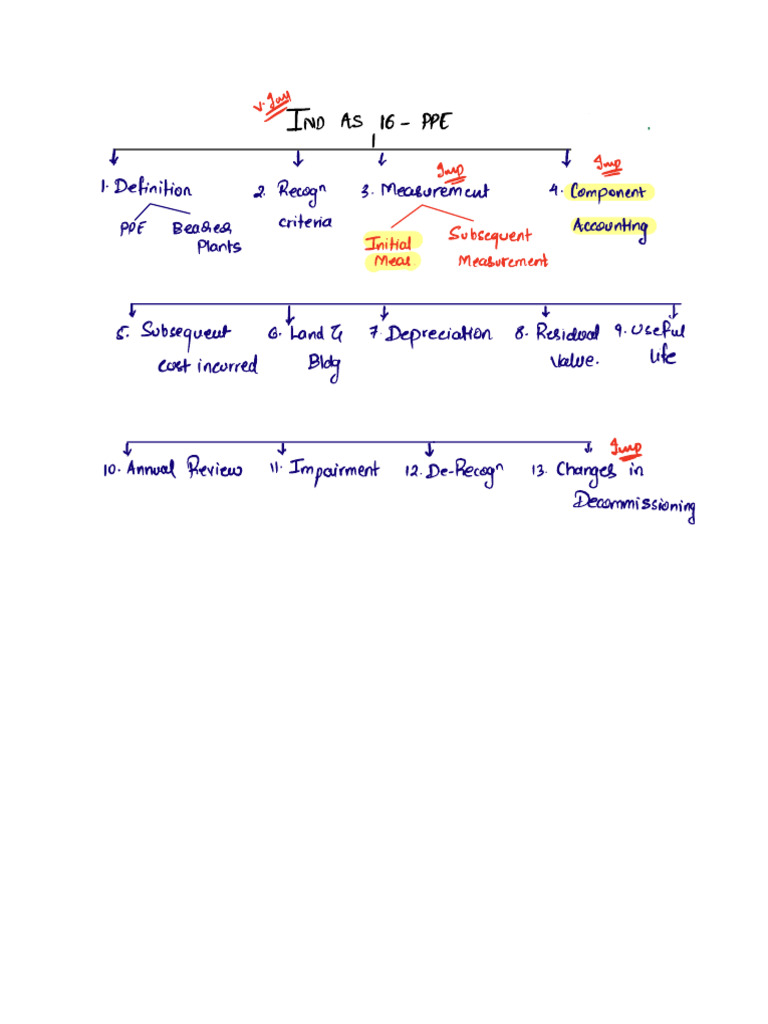 v. Imp
IND AS 16 - PPE
1. Definition
PPE
Bearer
Plants
2. Recogn
criteria
Imp
3. Measurement
Initial
Meas
Subsequent
Measurement
Imp
4. Component
Accounting
5. Subsequent
cost incurred
6. Land &
Bldg
7. Depreciation
8. Residual
Value.
9. Useful
life
10. Annual Review
11. Impairment
12. De-Recogn
Imp
13. Changes in
Decommissioning